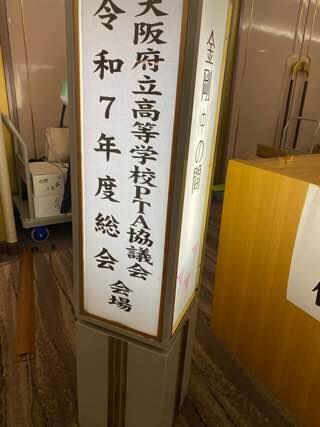 大阪府立高等学校PTA協議会
令和7年度総会 会場
金剛中の間